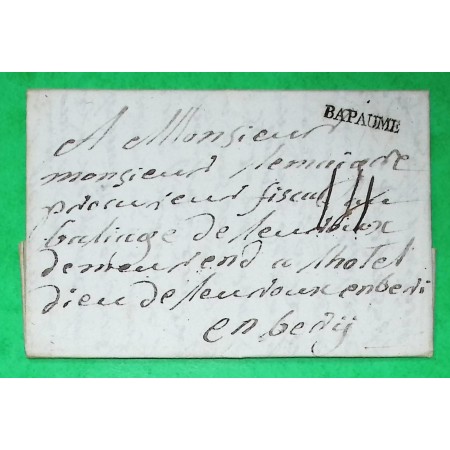 BAPAUME
A Monsieur
monsieur lemaigre
procureur fiscal au
baliage de leuroux
demeurend a lhotel
dieu de leuroux enberi
en berij